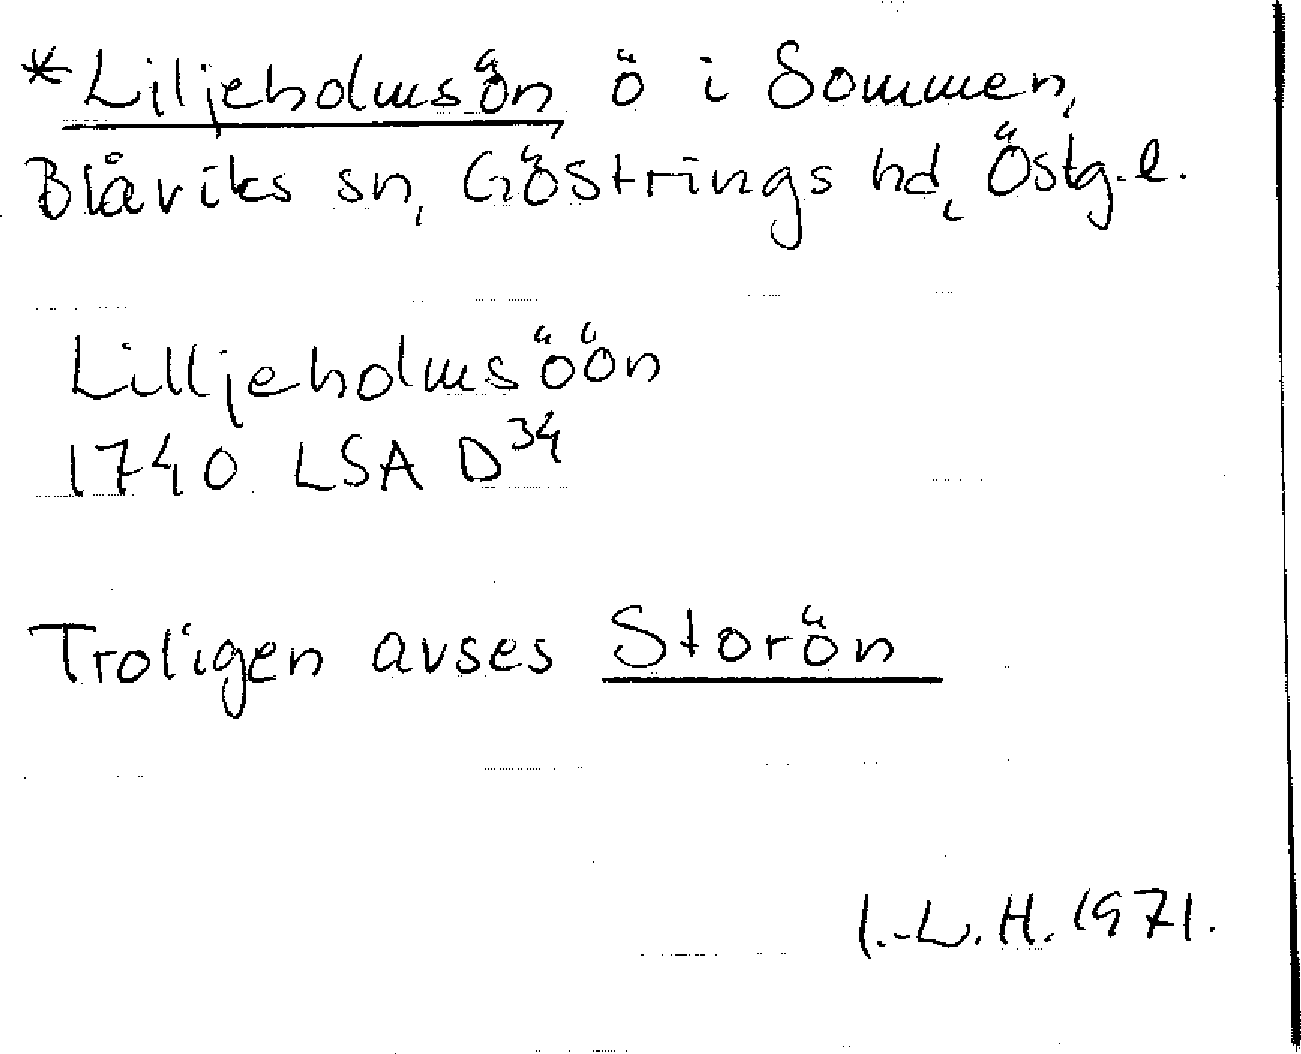 *Liljeholmsön, ö i Sommen,
Blåviks sn, Göstrings hd, Östg.l.
Lilljeholmsöön
1740 LSA D34
Troligen avses Storön
I.-L.H. 1971.